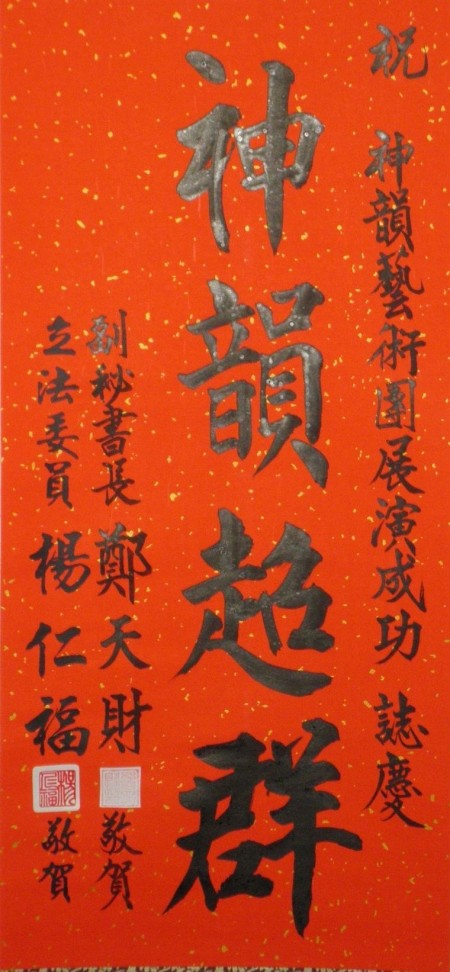 祝 神韻藝術團展演成功 誌慶
神韻超群
副秘書長 鄭天財 敬賀
立法委員 楊仁福 敬賀